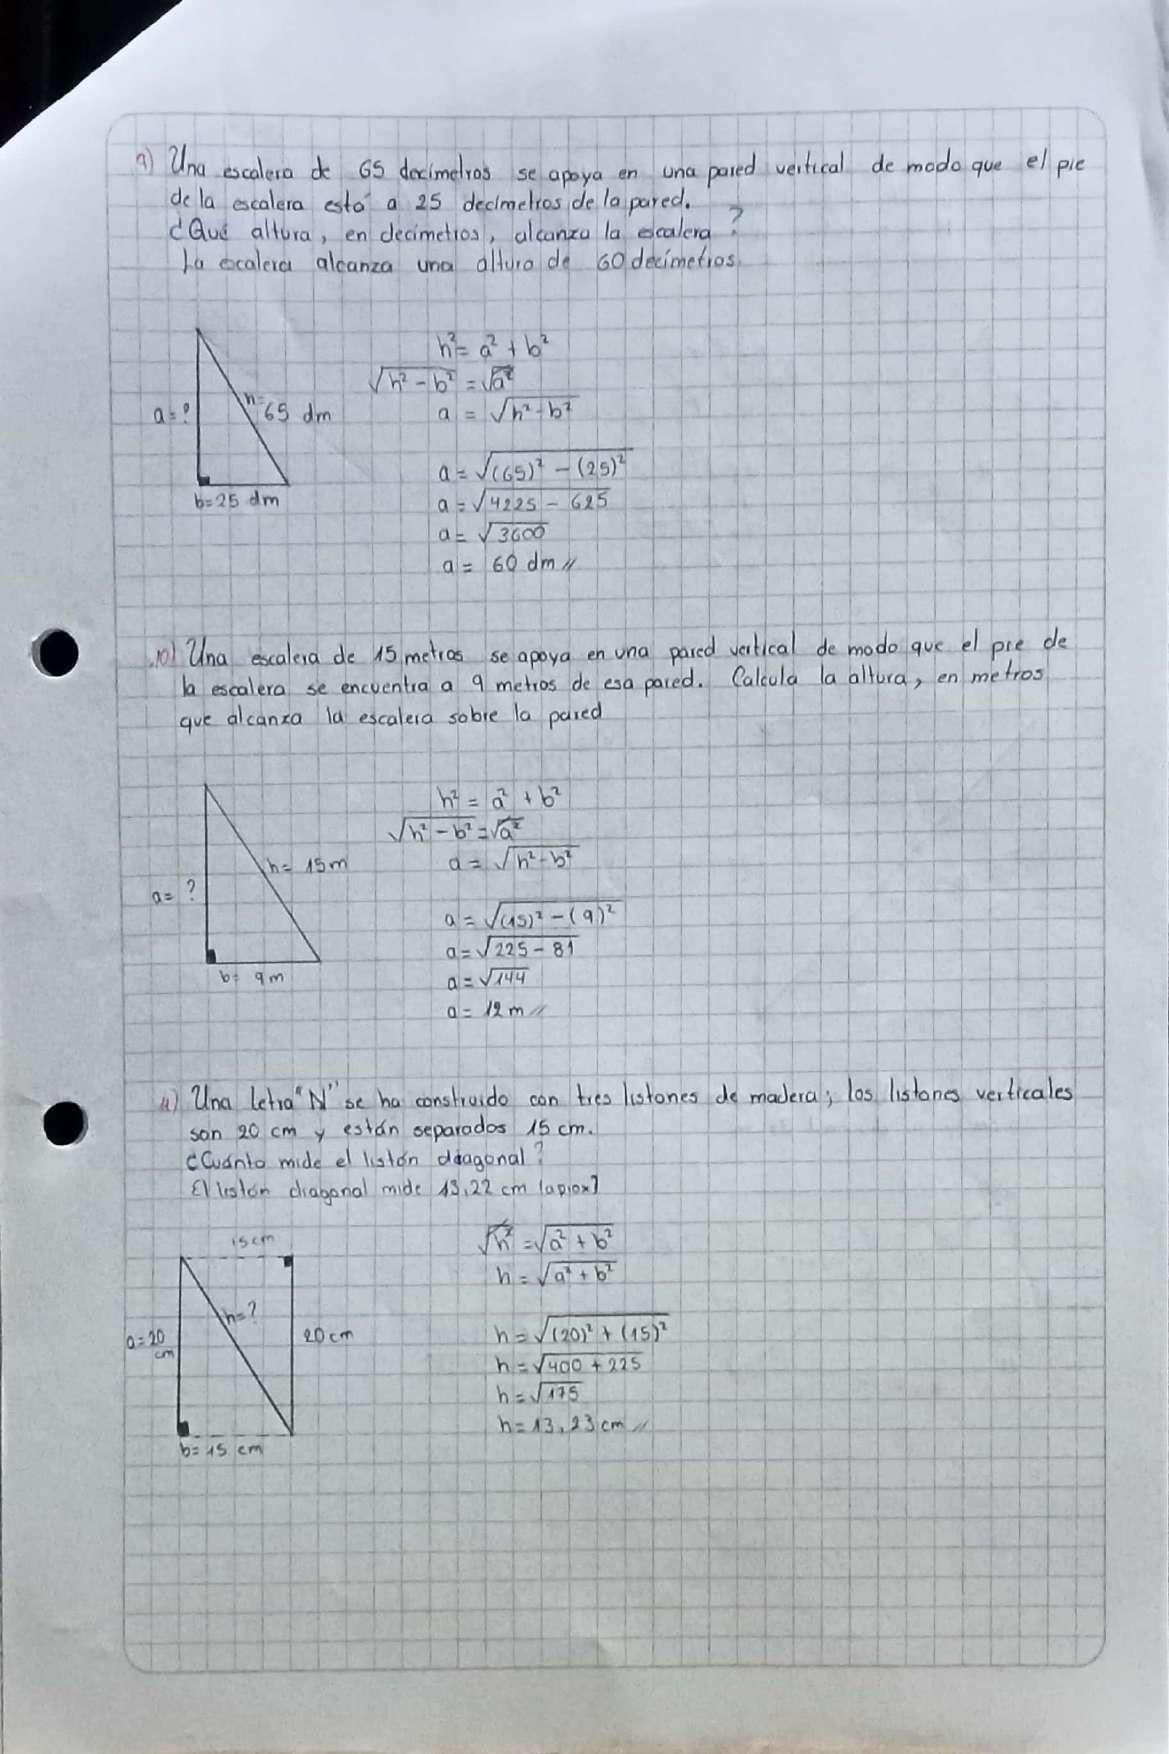 9) Una escalera de 65 decímetros se apoya en una pared vertical de modo que el pie
de la escalera está a 25 decímetros de la pared.
¿Qué altura, en decímetros, alcanza la escalera?
La escalera alcanza una altura de 60 decímetros.
h² = a² + b²
√h² - b² = √a²
a = √h² - b²
a = ?
h = 65 dm
b = 25 dm
a = √(65)² - (25)²
a = √4225 - 625
a = √3600
a = 60 dm //
10) Una escalera de 15 metros se apoya en una pared vertical de modo que el pie de
la escalera se encuentra a 9 metros de esa pared. Calcula la altura, en metros
que alcanza la escalera sobre la pared
h² = a² + b²
√h² - b² = √a²
a = √h² - b²
h = 15 m
a = ?
b = 9 m
a = √(15)² - (9)²
a = √225 - 81
a = √144
a = 12 m //
11) Una letra "N" se ha construido con tres listones de madera; los listones verticales
son 20 cm y están separados 15 cm.
¿Cuánto mide el listón diagonal?
El listón diagonal mide 13,22 cm (aprox)
15 cm
√h² = √a² + b²
h = √a² + b²
h = ?
a = 20
cm
20 cm
b = 15 cm
h = √(20)² + (15)²
h = √400 + 225
h = √175
h = 13,23 cm //